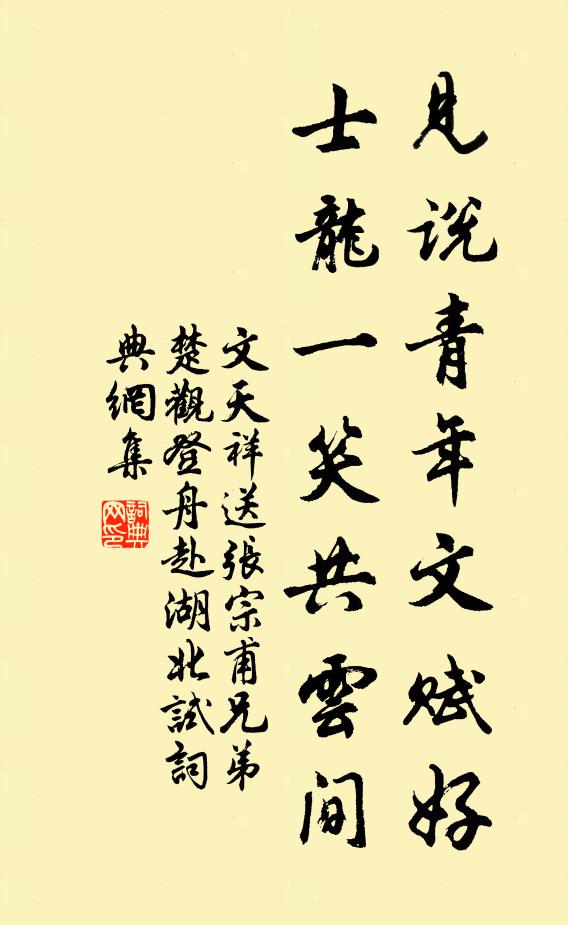 見説青年文賦好
士龍一笑共雲間
文天祥送張宗甫兄弟
楚觀登舟赴湖北試詞
典網集
詞典
网印